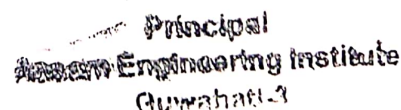 Principal
Assam Engineering Institute
Guwahati-3